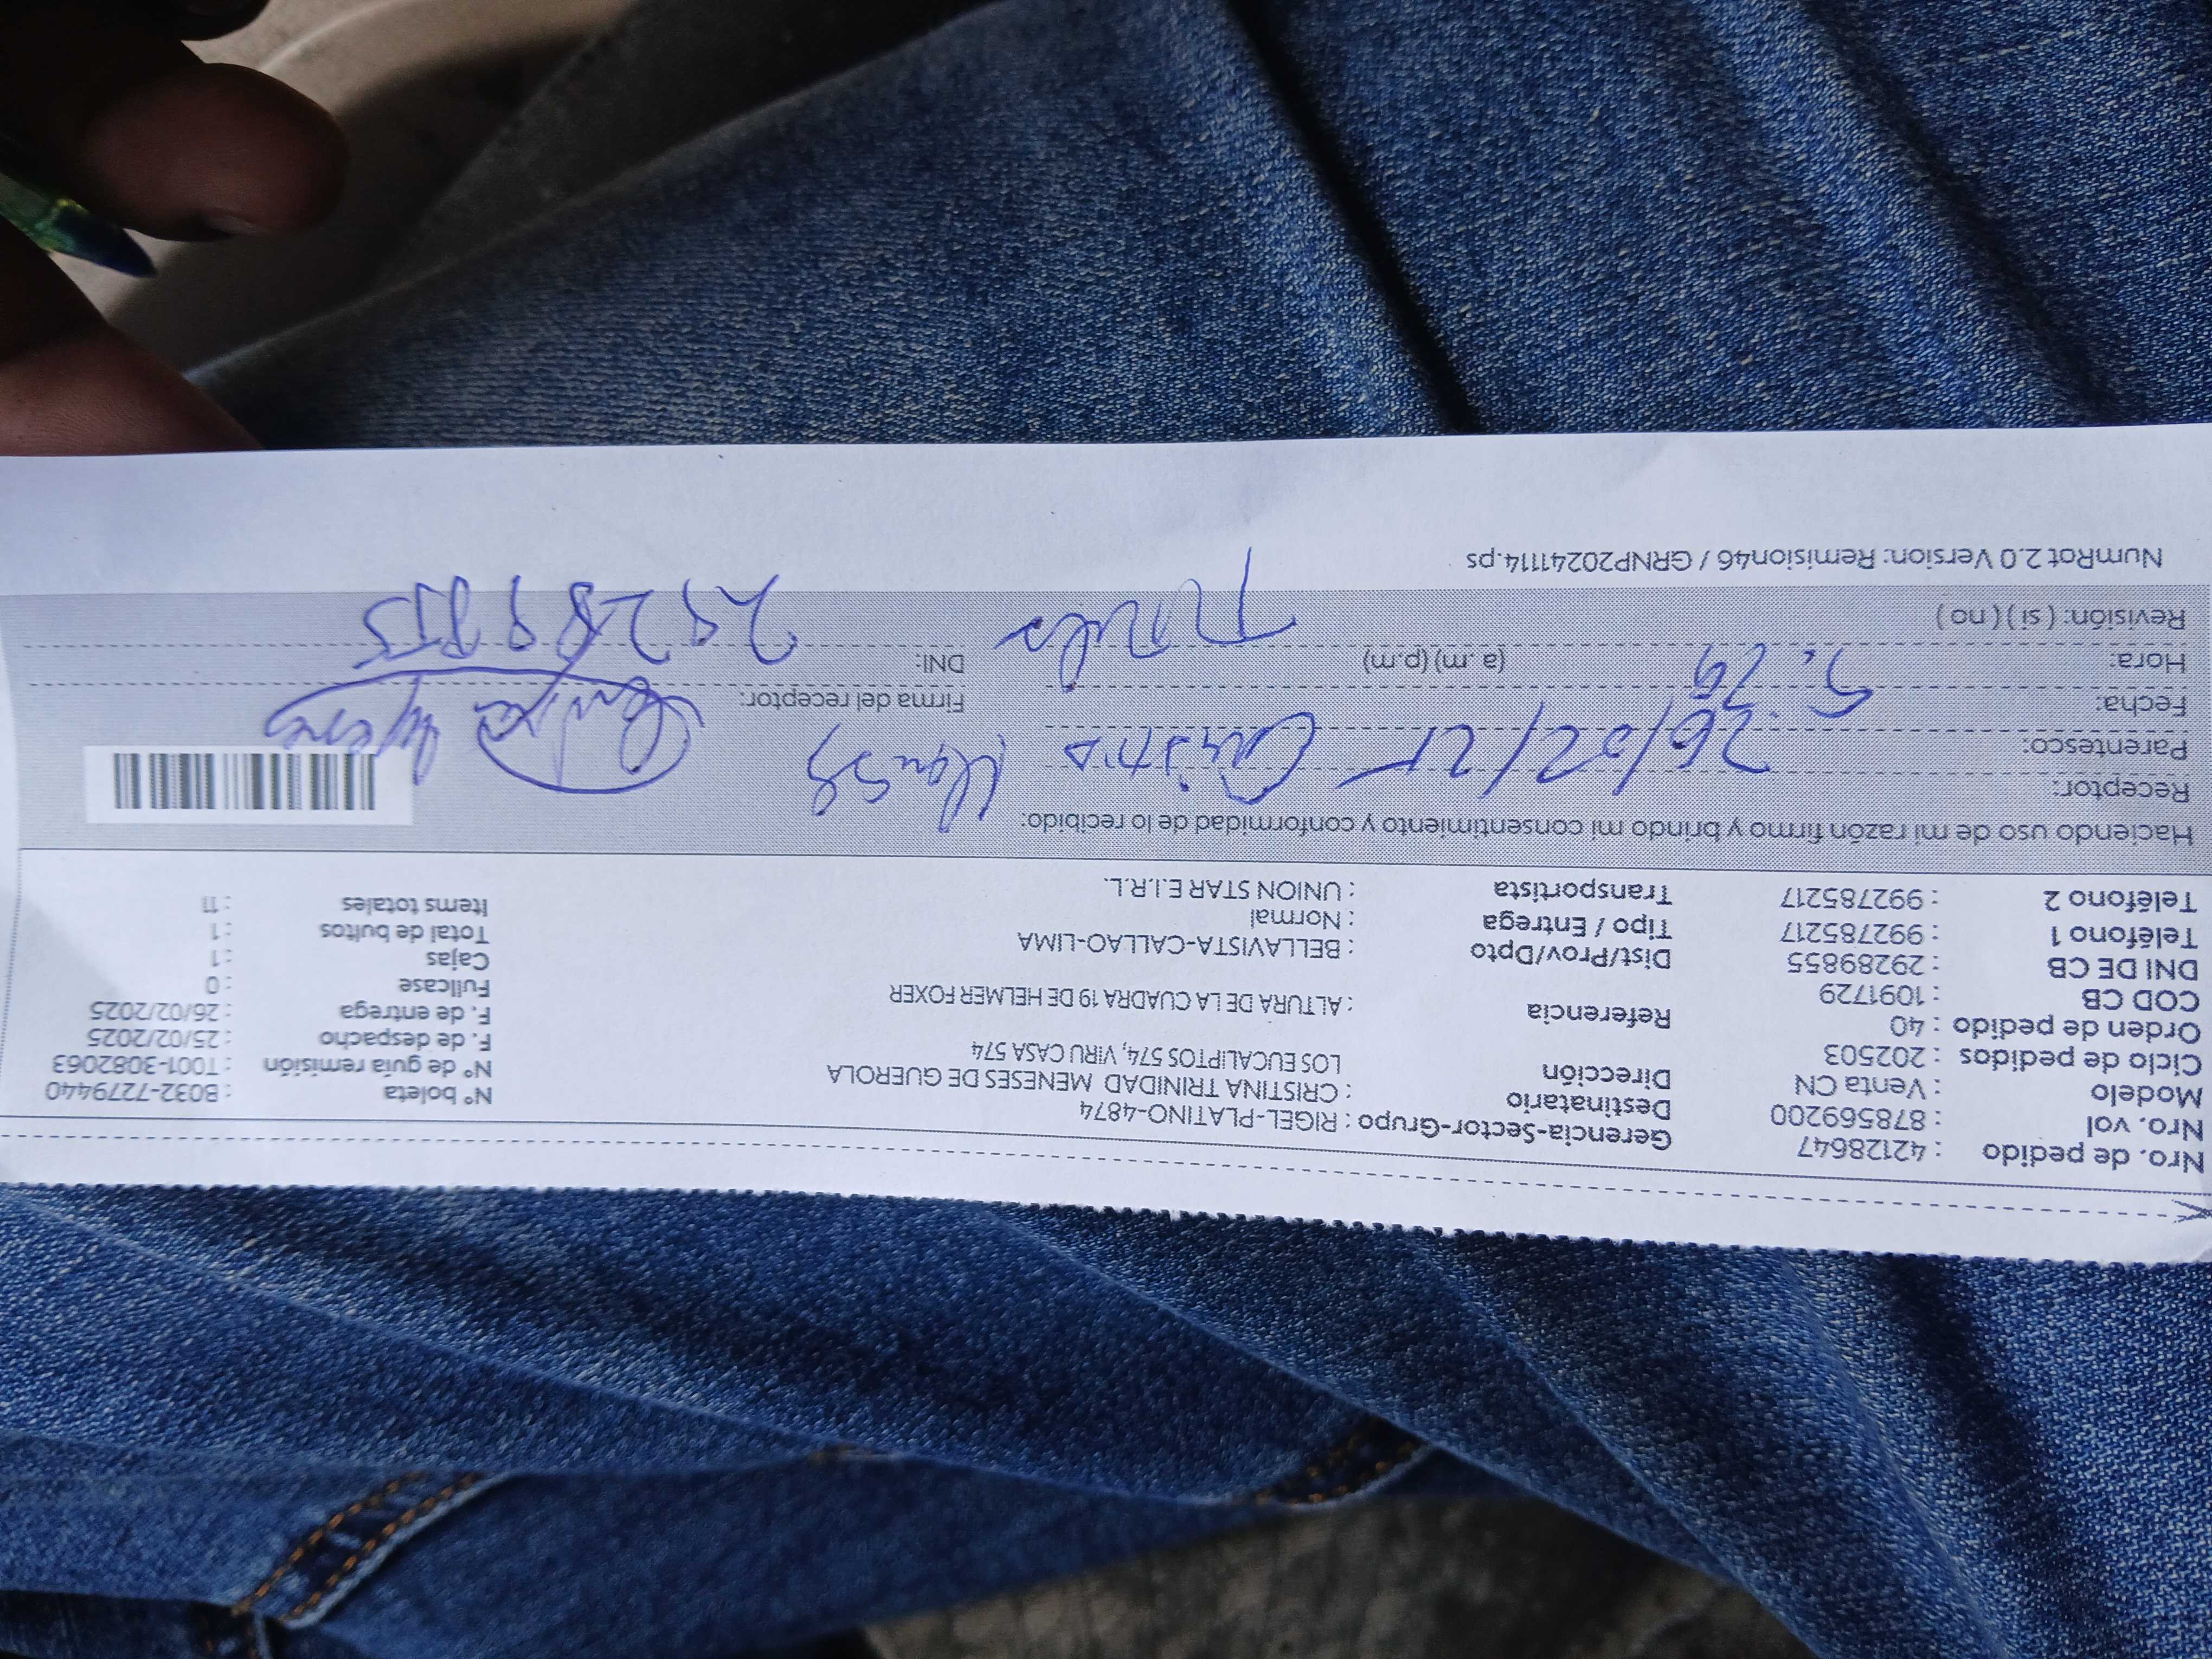 Nro. de pedido : 42128647
Nro. vol : 878569200
Modelo : Venta CN
Ciclo de pedidos : 202503
Orden de pedido : 40
COD CB : 1091729
DNI DE CB : 29289855
Teléfono 1 : 992785217
Teléfono 2 : 992785217
Gerencia-Sector-Grupo : RIGEL-PLATINO-4874
Destinatario : CRISTINA TRINIDAD MENESES DE GUEROLA
Dirección LOS EUCALIPTOS 574, VIRU CASA 574
Referencia : ALTURA DE LA CUADRA 19 DE HELMER FOXER
Dist/Prov/Dpto : BELLAVISTA-CALLAO-LIMA
Tipo / Entrega : Normal
Transportista : UNION STAR E.I.R.L.
N° boleta : B032-7279440
N° de guía remisión : T001-3082063
F. de despacho : 25/02/2025
F. de entrega : 26/02/2025
Fullcase : 0
Cajas : 1
Total de bultos : 1
Items totales : 11
Haciendo uso de mi razón firmo y brindo mi consentimiento y conformidad de lo recibido:
Receptor:
Parentesco: 26/02/25
Fecha:
Hora: (a.m) (p.m)
Revisión: ( si ) ( no )
Firma del receptor:
DNI: 29289855
NumRot 2.0 Version: Remision46 / GRNP20241114.ps